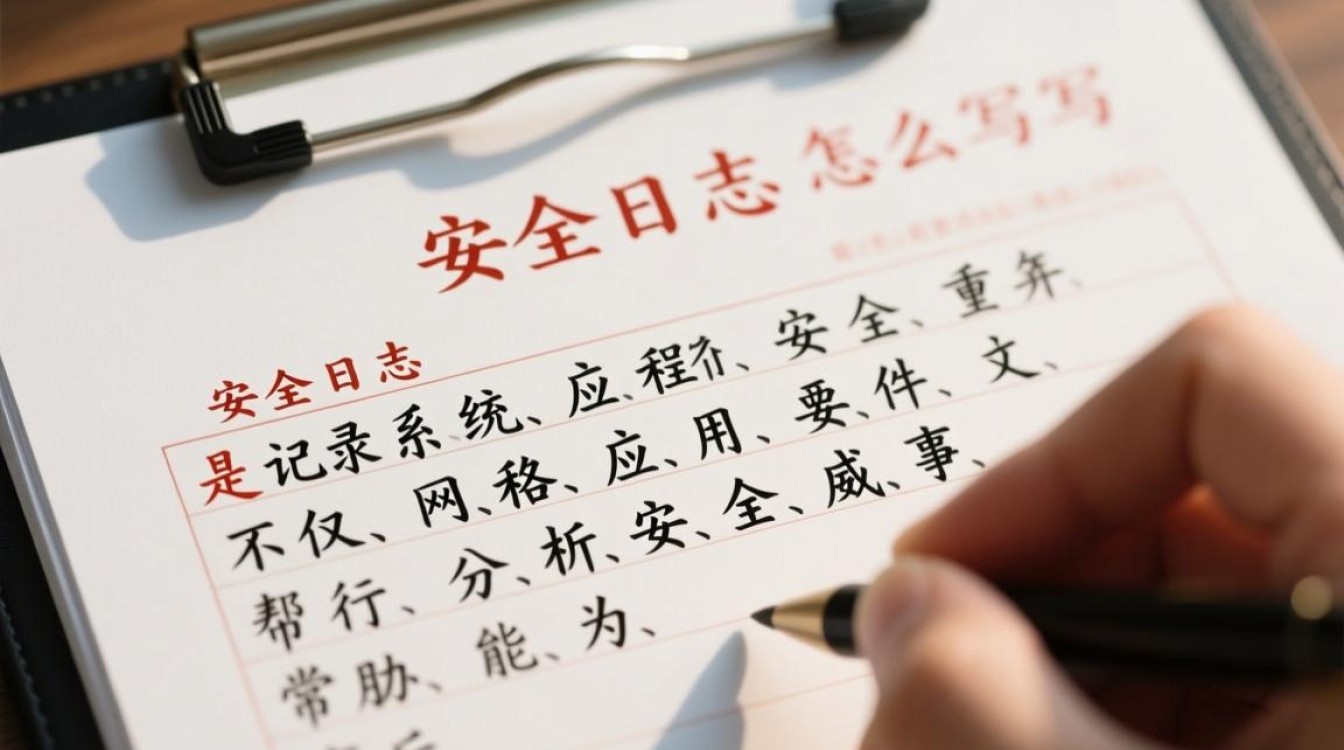 安全日志怎么写写
安全日志
是记录系统、应、程、安全、重年、
不仅、网、格、应、用、要、件、文、
帮行、分、析、安、全、威、事、
常胁、能、为、